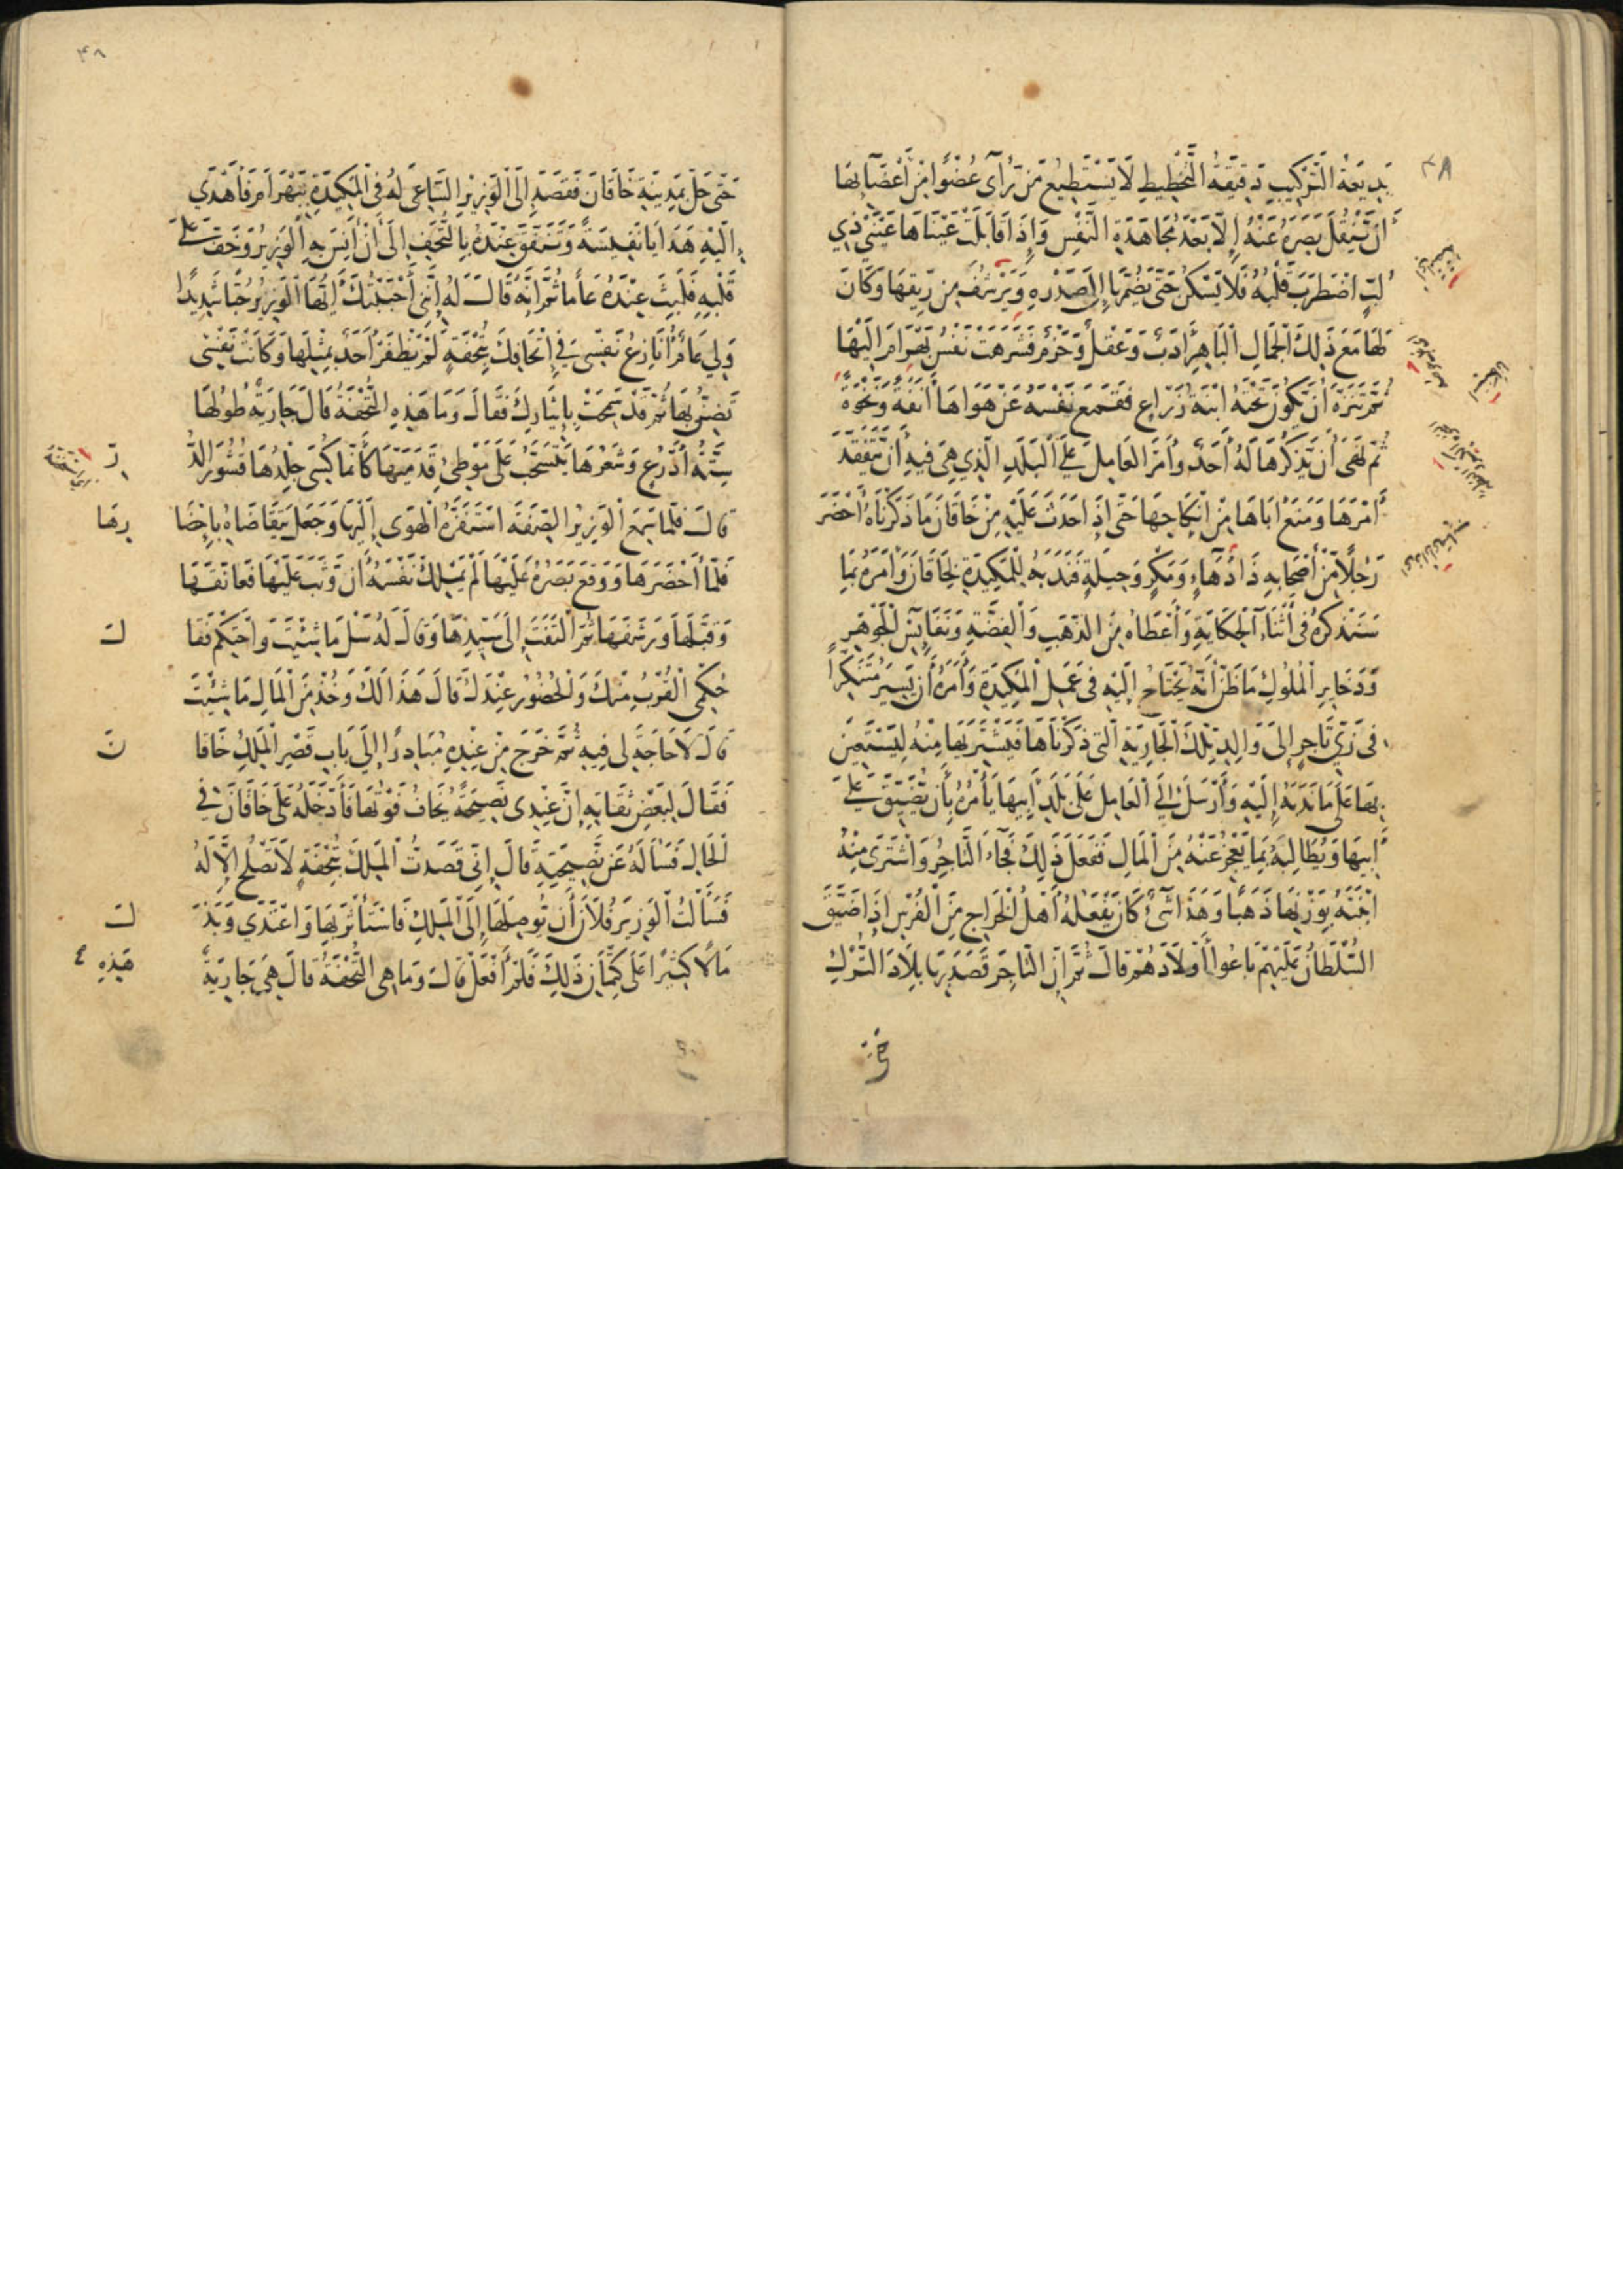 ٣٨
بَدِيعَةُ التَّرْكِيبِ دَقِيقَةُ التَّخْطِيطِ لَا يَسْتَطِيعُ مَنْ رَأَى عُضْوًا مِنْ أَعْضَآئِهَا
أَنْ يَنْقُلَ بَصَرَهُ عَنْهُ إِلَّا بَعْدَ مُجَاهَدَةِ النَّفْسِ وَإِذَا قَابَلَتْ عَيْنَاهَا عَيْنَيْ ذِي
لُبٍّ اضْطَرَبَ قَلْبُهُ فَلَا يَسْكُنُ حَتَّى يَضُمَّهَا إِلَى صَدْرِهِ وَيَرْشُفَ مِنْ رِيقِهَا وَكَانَ
لَهَا مَعَ ذَلِكَ الْجَمَالِ الْبَاهِرِ أَدَبٌ وَعَقْلٌ وَحَزْمٌ فَشَرِهَتْ نَفْسُ بَهْرَامَ إِلَيْهَا
ثُمَّ تَنَزَّهَ أَنْ يَكُونَ تَحْتَهُ ابْنَةُ زَرَّاعٍ فَقَمَعَ نَفْسَهُ عَنْ هَوَاهَا أَنَفَةً وَنَخْوَةً
ثُمَّ نَهَى أَنْ يَذْكُرَهَا لَهُ أَحَدٌ وَأَمَرَ الْعَامِلَ عَلَى الْبَلَدِ الَّذِي هِيَ فِيهِ أَنْ يَتَفَقَّدَ
أَمْرَهَا وَمَنَعَ أَبَاهَا مِنْ إِنْكَاحِهَا حَتَّى إِذَا حَدَثَ عَلَيْهِ مِنْ خَاقَانَ مَا ذَكَرْنَاهُ أَحْضَرَ
رَجُلًا مِنْ أَصْحَابِهِ ذَا دَهَآءٍ وَمَكْرٍ وَحِيلَةٍ فَنَدَبَهُ لِلْمَكِيدَةِ لِخَاقَانَ وَأَمَرَهُ بِمَا
سَنَذْكُرُهُ فِي أَثْنَآءِ الْحِكَايَةِ وَأَعْطَاهُ مِنَ الذَّهَبِ وَالْفِضَّةِ وَنَفَائِسِ الْجَوْهَرِ
وَذَخَايِرِ الْمُلُوكِ مَا ظَنَّ أَنَّهُ يَحْتَاجُ إِلَيْهِ فِي عَمَلِ الْمَكِيدَةِ وَأَمَرَهُ أَنْ يَسِيرَ مُتَنَكِّرًا
فِي زِيِّ تَاجِرٍ إِلَى وَالِدِ تِلْكَ الْجَارِيَةِ الَّتِي ذَكَرْنَاهَا فَيَشْتَرِيَهَا مِنْهُ لِيَسْتَعِينَ
بِهَا عَلَى مَا نَدَبَهُ إِلَيْهِ وَأَرْسَلَ إِلَى الْعَامِلِ عَلَى بَلَدِ أَبِيهَا يَأْمُرُهُ بِأَنْ يُضَيِّقَ عَلَى
أَبِيهَا وَيُطَالِبَهُ بِمَا يَعْجِزُ عَنْهُ مِنَ الْمَالِ فَفَعَلَ ذَلِكَ فَجَآءَ التَّاجِرُ وَاشْتَرَى مِنْهُ
ابْنَتَهُ بِوَزْنِهَا ذَهَبًا وَهَذَا شَيْءٌ كَانَ يَفْعَلُهُ أَهْلُ الْخَرَاجِ مِنَ الْفُرْسِ إِذَا ضَيَّقَ
السُّلْطَانُ عَلَيْهِمْ بَاعُوا أَوْلَادَهُمْ قَالَ ثُمَّ إِنَّ التَّاجِرَ قَصَدَ بِهَا بِلَادَ التُّرْكِ
حَتَّى
٣٨
حَتَّى حَلَّ بِمَدِينَةِ خَاقَانَ فَقَصَدَ إِلَى الْوَزِيرِ السَّاعِي لَهُ فِي الْمَكِيدَةِ بِبَهْرَامَ فَأَهْدَى
إِلَيْهِ هَدَايَا نَفِيسَةً وَتَنَفَّقَ عِنْدَهُ بِالتُّحَفِ إِلَى أَنْ أَنِسَ بِهِ الْوَزِيرُ وَخَفَّ عَلَى
قَلْبِهِ فَلَبِثَ عِنْدَهُ عَامًا ثُمَّ إِنَّهُ قَالَ لَهُ إِنِّي أَحْبَبْتُكَ أَيُّهَا الْوَزِيرُ حُبًّا شَدِيدًا
وَلِي عَامٌ أُنَازِعُ نَفْسِي فِي إِتْحَافِكَ بِتُحْفَةٍ لَمْ يَظْفَرْ أَحَدٌ بِمِثْلِهَا وَكَانَتْ نَفْسِي
تَضِنُّ بِهَا ثُمَّ قَدْ سَمَحَتْ بِإِيثَارِكَ فَقَالَ وَمَا هَذِهِ التُّحْفَةُ قَالَ جَارِيَةٌ طُولُهَا
سِتَّةُ أَذْرُعٍ وَشَعْرُهَا يَنْسَحِبُ عَلَى مَوْطِئِ قَدَمَيْهَا كَأَنَّمَا كُسِيَ جِلْدُهَا قُشُورَ الدُّ رِّ
قَالَ فَلَمَّا سَمِعَ الْوَزِيرُ الصِّفَةَ اسْتَفَزَّهُ الْهَوَى إِلَيْهَا وَجَعَلَ يَتَقَاضَاهُ بِإِحْضَا رِهَا
فَلَمَّا أَحْضَرَهَا وَوَقَعَ بَصَرُهُ عَلَيْهَا لَمْ يَمْلِكْ نَفْسَهُ أَنْ وَثَبَ عَلَيْهَا فَعَانَقَهَا
وَقَبَّلَهَا وَرَشَفَهَا ثُمَّ الْتَفَتَ إِلَى سَيِّدِهَا وَقَالَ لَهُ سَلْ مَا شِئْتَ وَاحْتَكِمْ فَقَا لَ
حُكْمِي الْقُرْبُ مِنْكَ وَالْحُضُورُ عِنْدَكَ قَالَ هَذَا لَكَ وَخُذْ مِنَ الْمَالِ مَا شِئْتَ
قَالَ لَا حَاجَةَ لِي فِيهِ ثُمَّ خَرَجَ مِنْ عِنْدِهِ مُبَادِرًا إِلَى بَابِ قَصْرِ الْمَلِكِ خَاقَا نَ
فَقَالَ لِبَعْضِ ثِقَاتِهِ إِنَّ عِنْدِي نَصِيحَةً يُخَافُ فَوْتُهَا فَأَدْخَلَهُ عَلَى خَاقَانَ فِي
الْحَالِ فَسَأَلَهُ عَنْ نَصِيحَتِهِ قَالَ إِنِّي قَصَدْتُ الْمَلِكَ بِتُحْفَةٍ لَا تَصْلُحُ إِلَّا لَهُ
فَسَأَلْتُ الْوَزِيرَ فُلَانَ أَنْ يُوصِلَهَا إِلَى الْمَلِكِ فَاسْتَأْثَرَ بِهَا وَاعْتَدَى وَبَذَ لَ
مَالًا كَثِيرًا عَلَى كِتْمَانِ ذَلِكَ فَلَمْ أَفْعَلْ قَالَ وَمَا هِيَ التُّحْفَةُ قَالَ هِيَ جَارِيَةٌ هَذِهِ